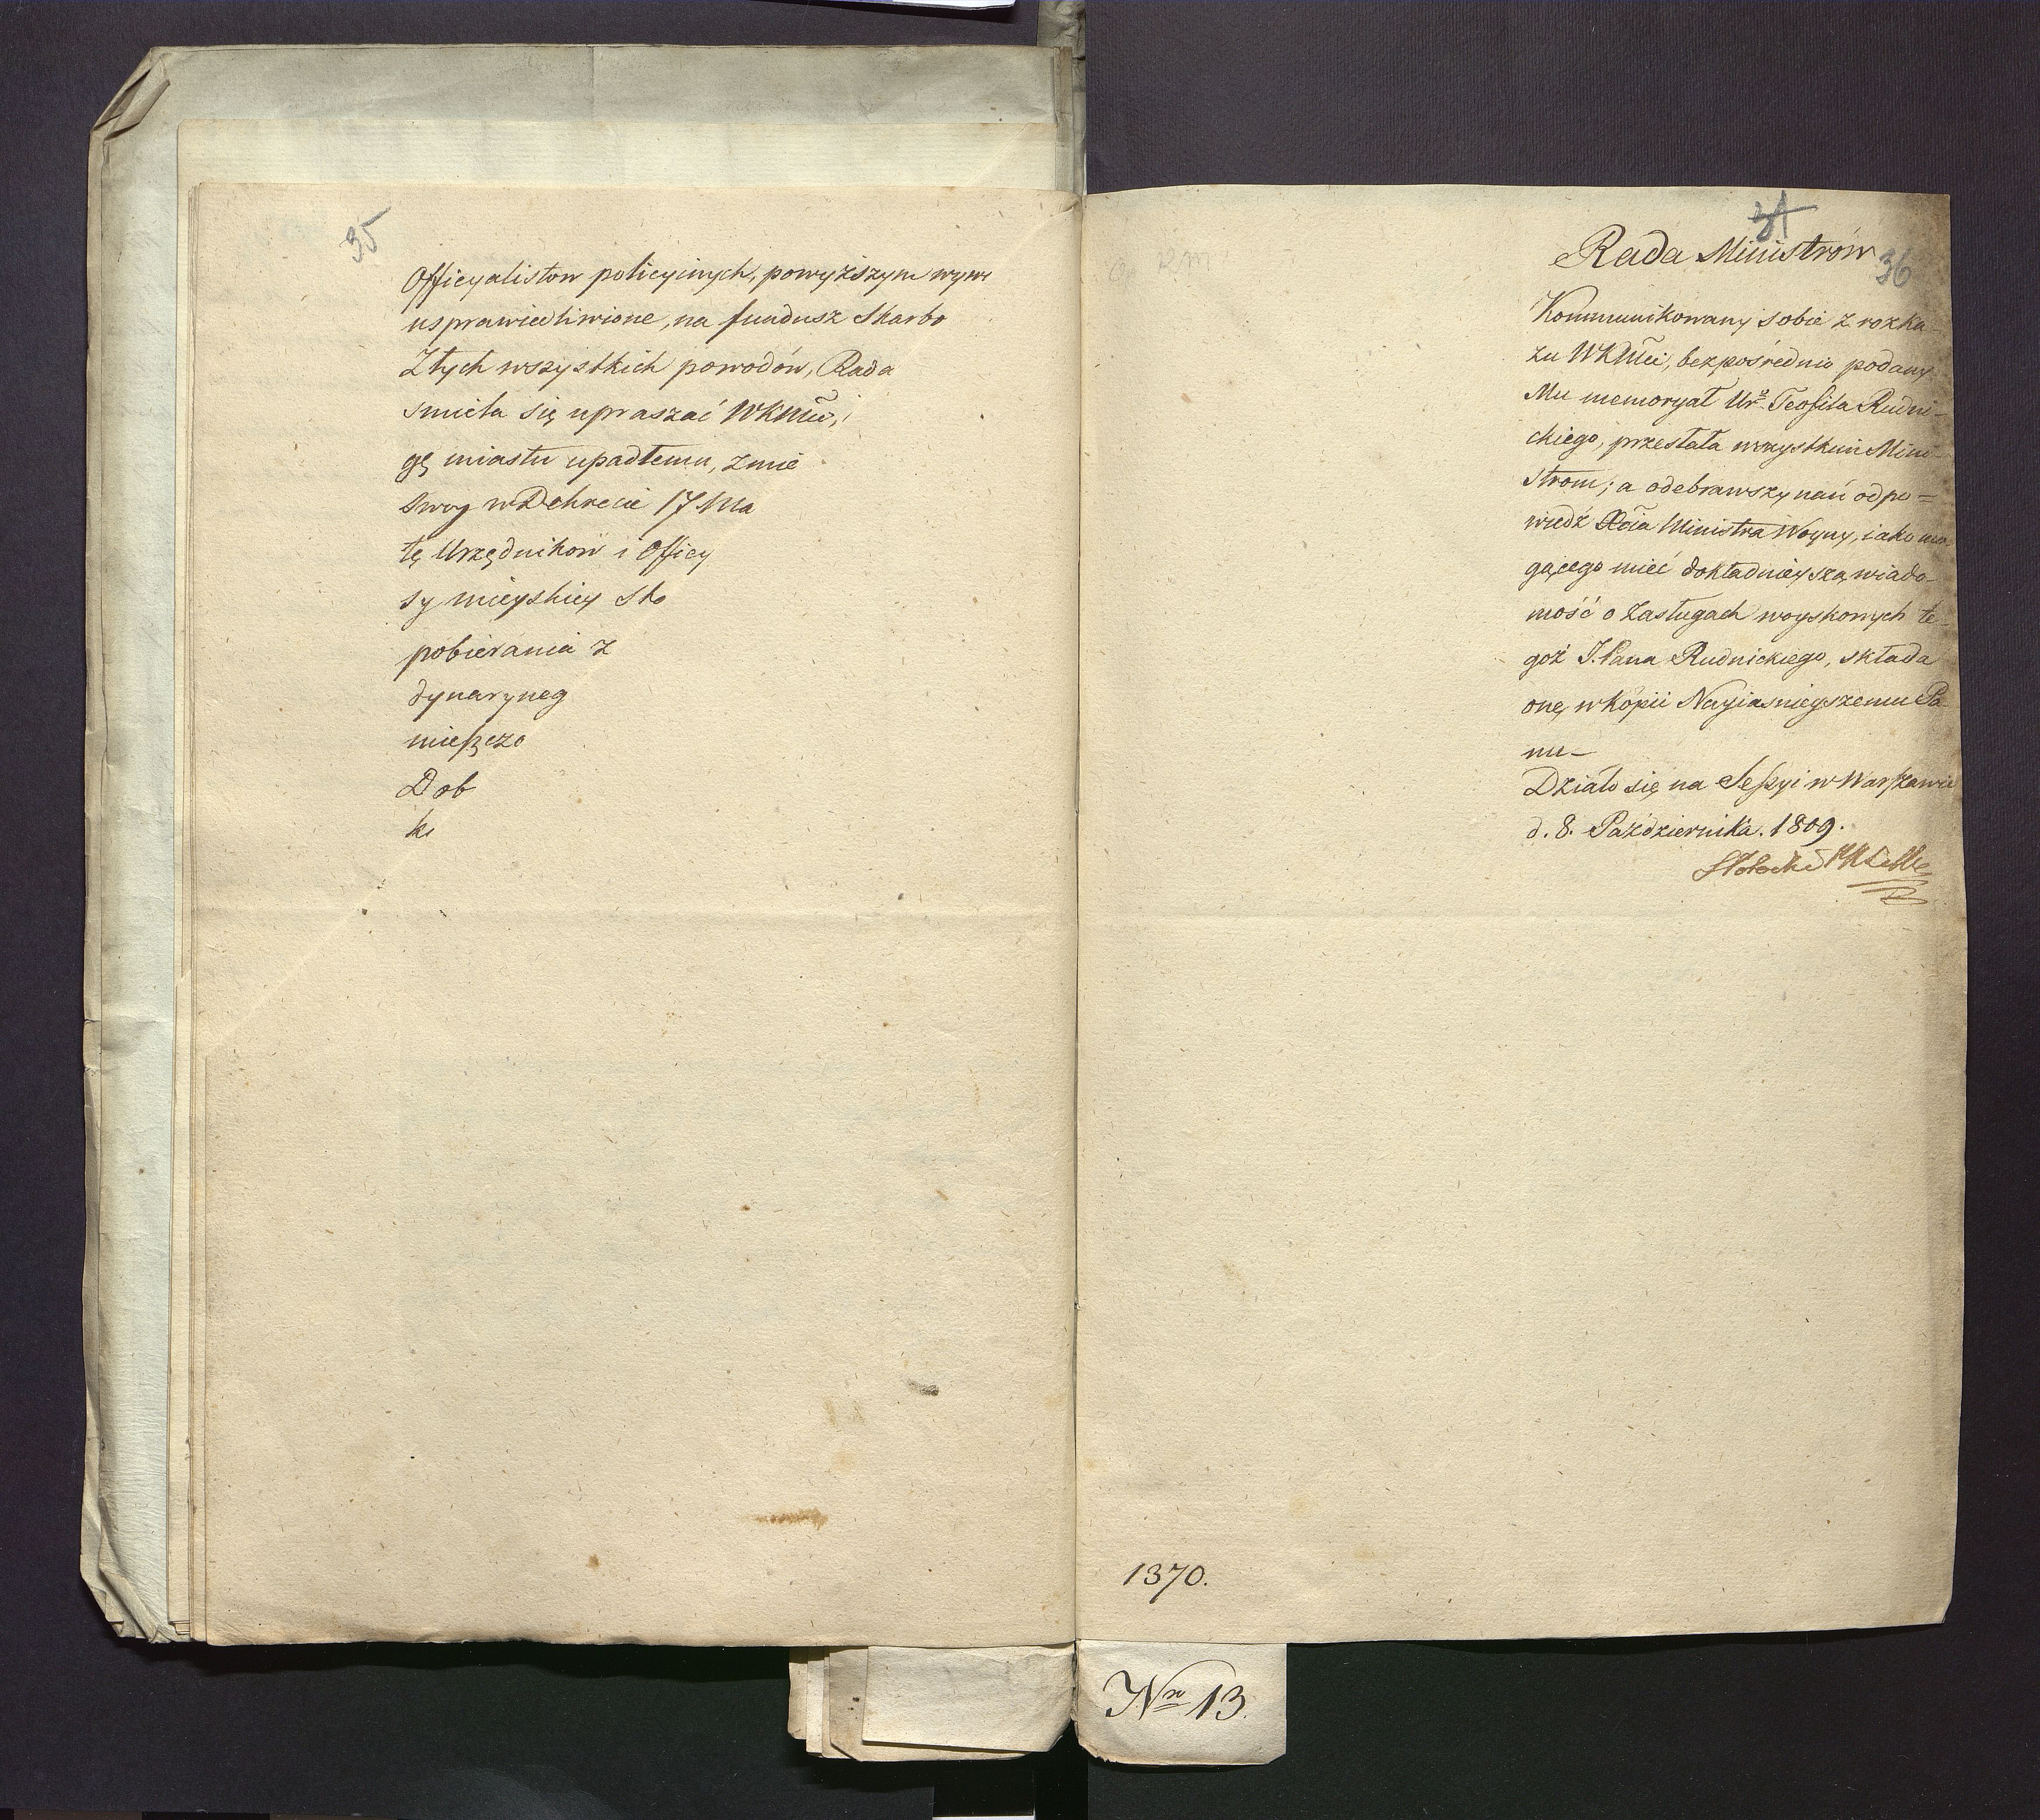 35
Officyalistow policyinych, powyższym wyw
usprawiedliwione, na fundusz Skarbo
Z tych wszystkich powodów, Rada
smieła się upraszać WKMci, i
gę miastu upadłemu, zmie
swoy w Dekrecie 17 Ma
tę Urzędnikow i Officy
sy mieyskiey sto
pobierania z
dynaryneg
mieszczo
Dob
ki
31
Rada Ministrów
36
Kommunikowany sobie z rozka-
zu WKMci, bezpośrednio podany
Mu memoryał Uro Teofila Rudni-
ckiego, przesłała wszystkim Mini-
strom; a odebrawszy nań odpo=
wiedź Xcia Ministra Woyny, iako mo
gącego mieć dokładnieyszą wiado-
mość o zasługach woyskowych te-
goż J. Pana Rudnickiego, składa
onę w kopii Nayiasnieyszemu Pa-
nu-
Działo się na Sessyi w Warszawie
d. 8. Października. 1809.
1370.
Nro 13.